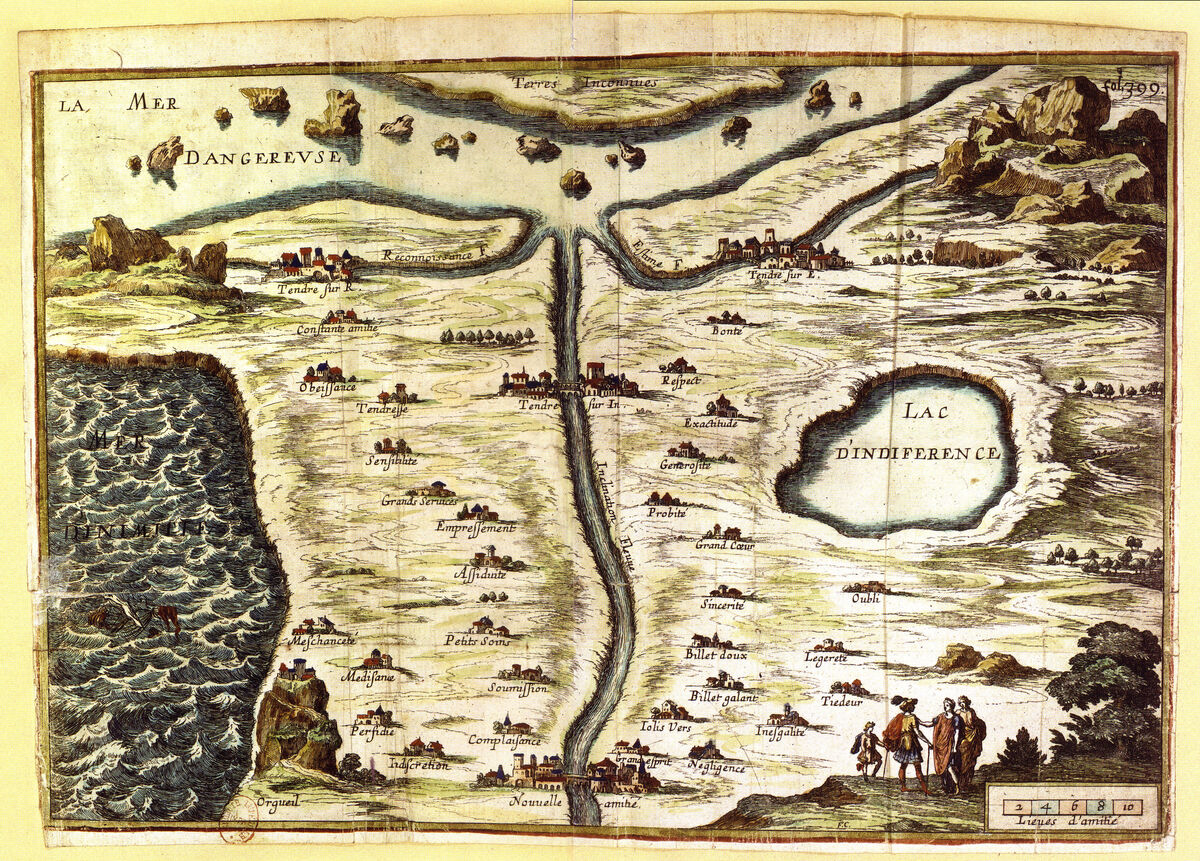 Terres Inconnues
fol. 399.
LA, MER
DANGEREVSE
Reconnoissance F
Estime F
Tendre sur R.
Tendre sur E.
Constante amitié
Bonté
Obeissance
Tendresse
Tendre sur In.
Respect
Exactitude
LAC
D'INDIFERENCE
MER
D'INIMITIE
Sensibilité
Generosité
Inclination Fleuve
Grands Services
Probité
Empressement
Grand Cœur
Assiduité
Sincerité
Oubli
Meschanceté
Petits Soins
Billet doux
Legereté
Medisance
Soumission
Billet galant
Tiedeur
Perfidie
Complaisance
Iolis Vers
Inesgalité
Indiscretion
Grand esprit
Negligence
Orgueil
Nouvelle amitié.
2 4 6 8 10
Lieues d'amitié